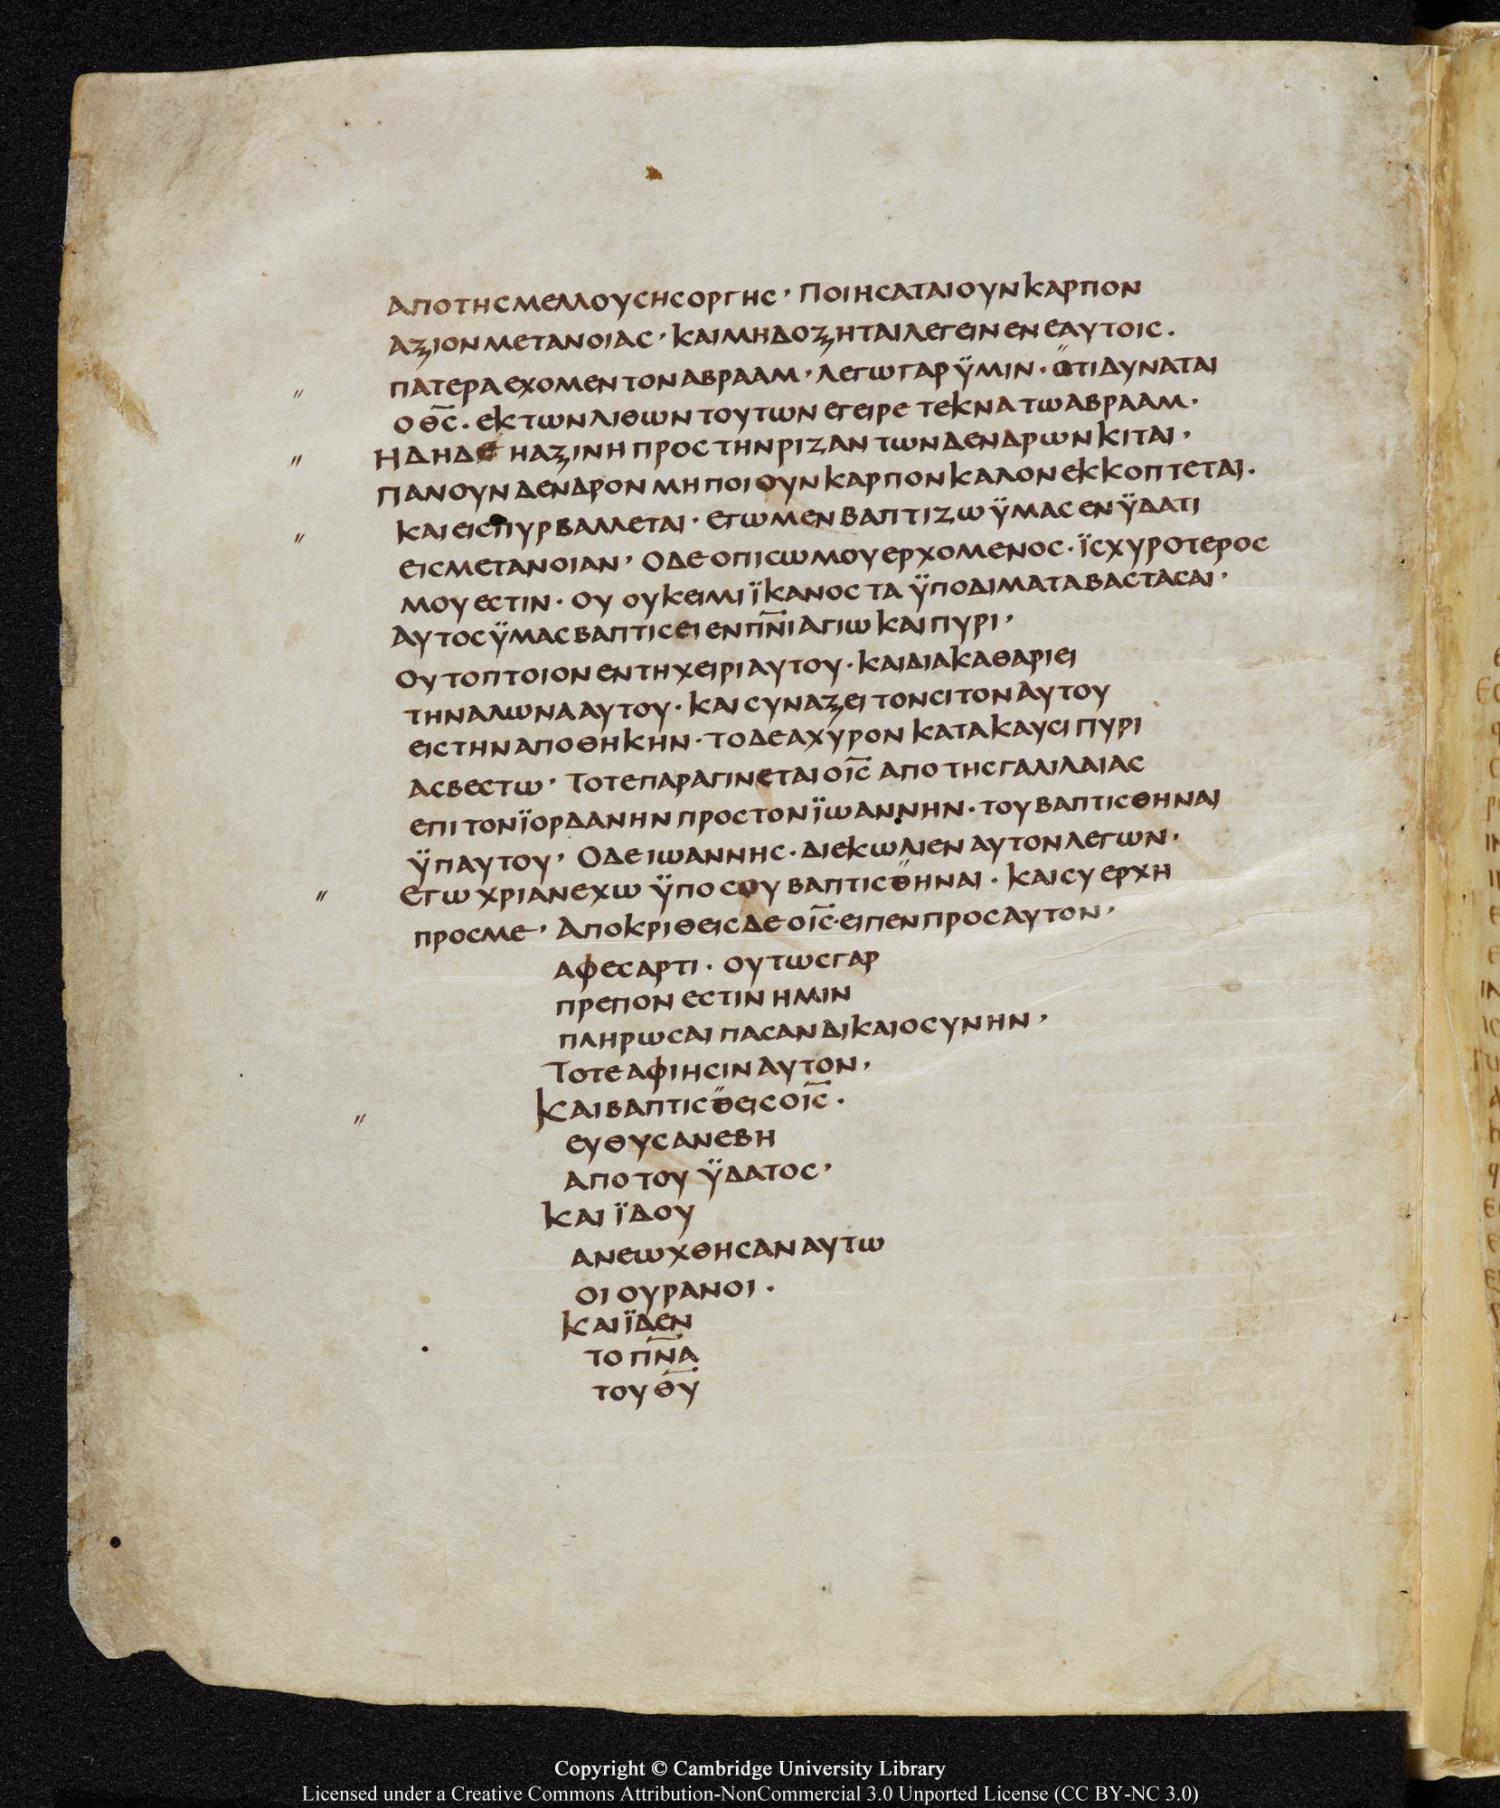 ΑΠΟΤΗΣΜΕΛΛΟΥΣΗΣΟΡΓΗΣ· ΠΟΙΗΣΑΤΑΙΟΥΝΚΑΡΠΟΝ
ΑΞΙΟΝΜΕΤΑΝΟΙΑΣ· ΚΑΙΜΗΔΟΞΗΤΑΙΛΕΓΕΙΝΕΝΕΑΥΤΟΙΣ·
ΠΑΤΕΡΑΕΧΟΜΕΝΤΟΝΑΒΡΑΑΜ· ΛΕΓΩΓΑΡΫΜΙΝ· ΟΤΙΔΥΝΑΤΑΙ
ΟΘ̅Σ̅· ΕΚΤΩΝΛΙΘΩΝΤΟΥΤΩΝΕΓΕΙΡΕΤΕΚΝΑΤΩΑΒΡΑΑΜ·
ΗΔΗΔΕΗΑΞΙΝΗΠΡΟΣΤΗΝΡΙΖΑΝΤΩΝΔΕΝΔΡΩΝΚΙΤΑΙ·
ΠΑΝΟΥΝΔΕΝΔΡΟΝΜΗΠΟΙΟΥΝΚΑΡΠΟΝΚΑΛΟΝΕΚΚΟΠΤΕΤΑΙ·
ΚΑΙΕΙΣΠΥΡΒΑΛΛΕΤΑΙ· ΕΓΩΜΕΝΒΑΠΤΙΖΩΫΜΑΣΕΝΫΔΑΤΙ
ΕΙΣΜΕΤΑΝΟΙΑΝ· ΟΔΕΟΠΙΣΩΜΟΥΕΡΧΟΜΕΝΟΣ· ΪΣΧΥΡΟΤΕΡΟΣ
ΜΟΥΕΣΤΙΝ· ΟΥΟΥΚΕΙΜΙΪΚΑΝΟΣΤΑΫΠΟΔΙΜΑΤΑΒΑΣΤΑΣΑΙ·
ΑΥΤΟΣΫΜΑΣΒΑΠΤΙΣΕΙΕΝΠ̅Ν̅Ι̅ΑΓΙΩΚΑΙΠΥΡΙ·
ΟΥΤΟΠΤΟΙΟΝΕΝΤΗΧΕΙΡΙΑΥΤΟΥ· ΚΑΙΔΙΑΚΑΘΑΡΙΕΙ
ΤΗΝΑΛΩΝΑΑΥΤΟΥ· ΚΑΙΣΥΝΑΞΕΙΤΟΝΣΙΤΟΝΑΥΤΟΥ
ΕΙΣΤΗΝΑΠΟΘΗΚΗΝ· ΤΟΔΕΑΧΥΡΟΝΚΑΤΑΚΑΥΣΙΠΥΡΙ
ΑΣΒΕΣΤΩ· ΤΟΤΕΠΑΡΑΓΙΝΕΤΑΙΟΙ̅Σ̅ΑΠΟΤΗΣΓΑΛΙΛΑΙΑΣ
ΕΠΙΤΟΝΪΟΡΔΑΝΗΝΠΡΟΣΤΟΝΪΩΑΝΝΗΝ· ΤΟΥΒΑΠΤΙΣΘΗΝΑΙ
ΫΠΑΥΤΟΥ· ΟΔΕΙΩΑΝΝΗΣ· ΔΙΕΚΩΛΙΕΝΑΥΤΟΝΛΕΓΩΝ·
ΕΓΩΧΡΙΑΝΕΧΩΫΠΟΣΟΥΒΑΠΤΙΣΘΗΝΑΙ· ΚΑΙΣΥΕΡΧΗ
ΠΡΟΣΜΕ· ΑΠΟΚΡΙΘΕΙΣΔΕΟΙ̅Σ̅· ΕΙΠΕΝΠΡΟΣΑΥΤΟΝ·
ΑΦΕΣΑΡΤΙ· ΟΥΤΩΣΓΑΡ
ΠΡΕΠΟΝΕΣΤΙΝΗΜΙΝ
ΠΛΗΡΩΣΑΙΠΑΣΑΝΔΙΚΑΙΟΣΥΝΗΝ·
ΤΟΤΕΑΦΙΗΣΙΝΑΥΤΟΝ·
ΚΑΙΒΑΠΤΙΣΘΕΙΣΟΙ̅Σ̅·
ΕΥΘΥΣΑΝΕΒΗ
ΑΠΟΤΟΥΫΔΑΤΟΣ·
ΚΑΙΪΔΟΥ
ΑΝΕΩΧΘΗΣΑΝΑΥΤΩ
ΟΙΟΥΡΑΝΟΙ·
ΚΑΙΪΔΕΝ
ΤΟΠ̅Ν̅Α̅
ΤΟΥΘ̅Υ̅
Copyright © Cambridge University Library
Licensed under a Creative Commons Attribution-NonCommercial 3.0 Unported License (CC BY-NC 3.0)